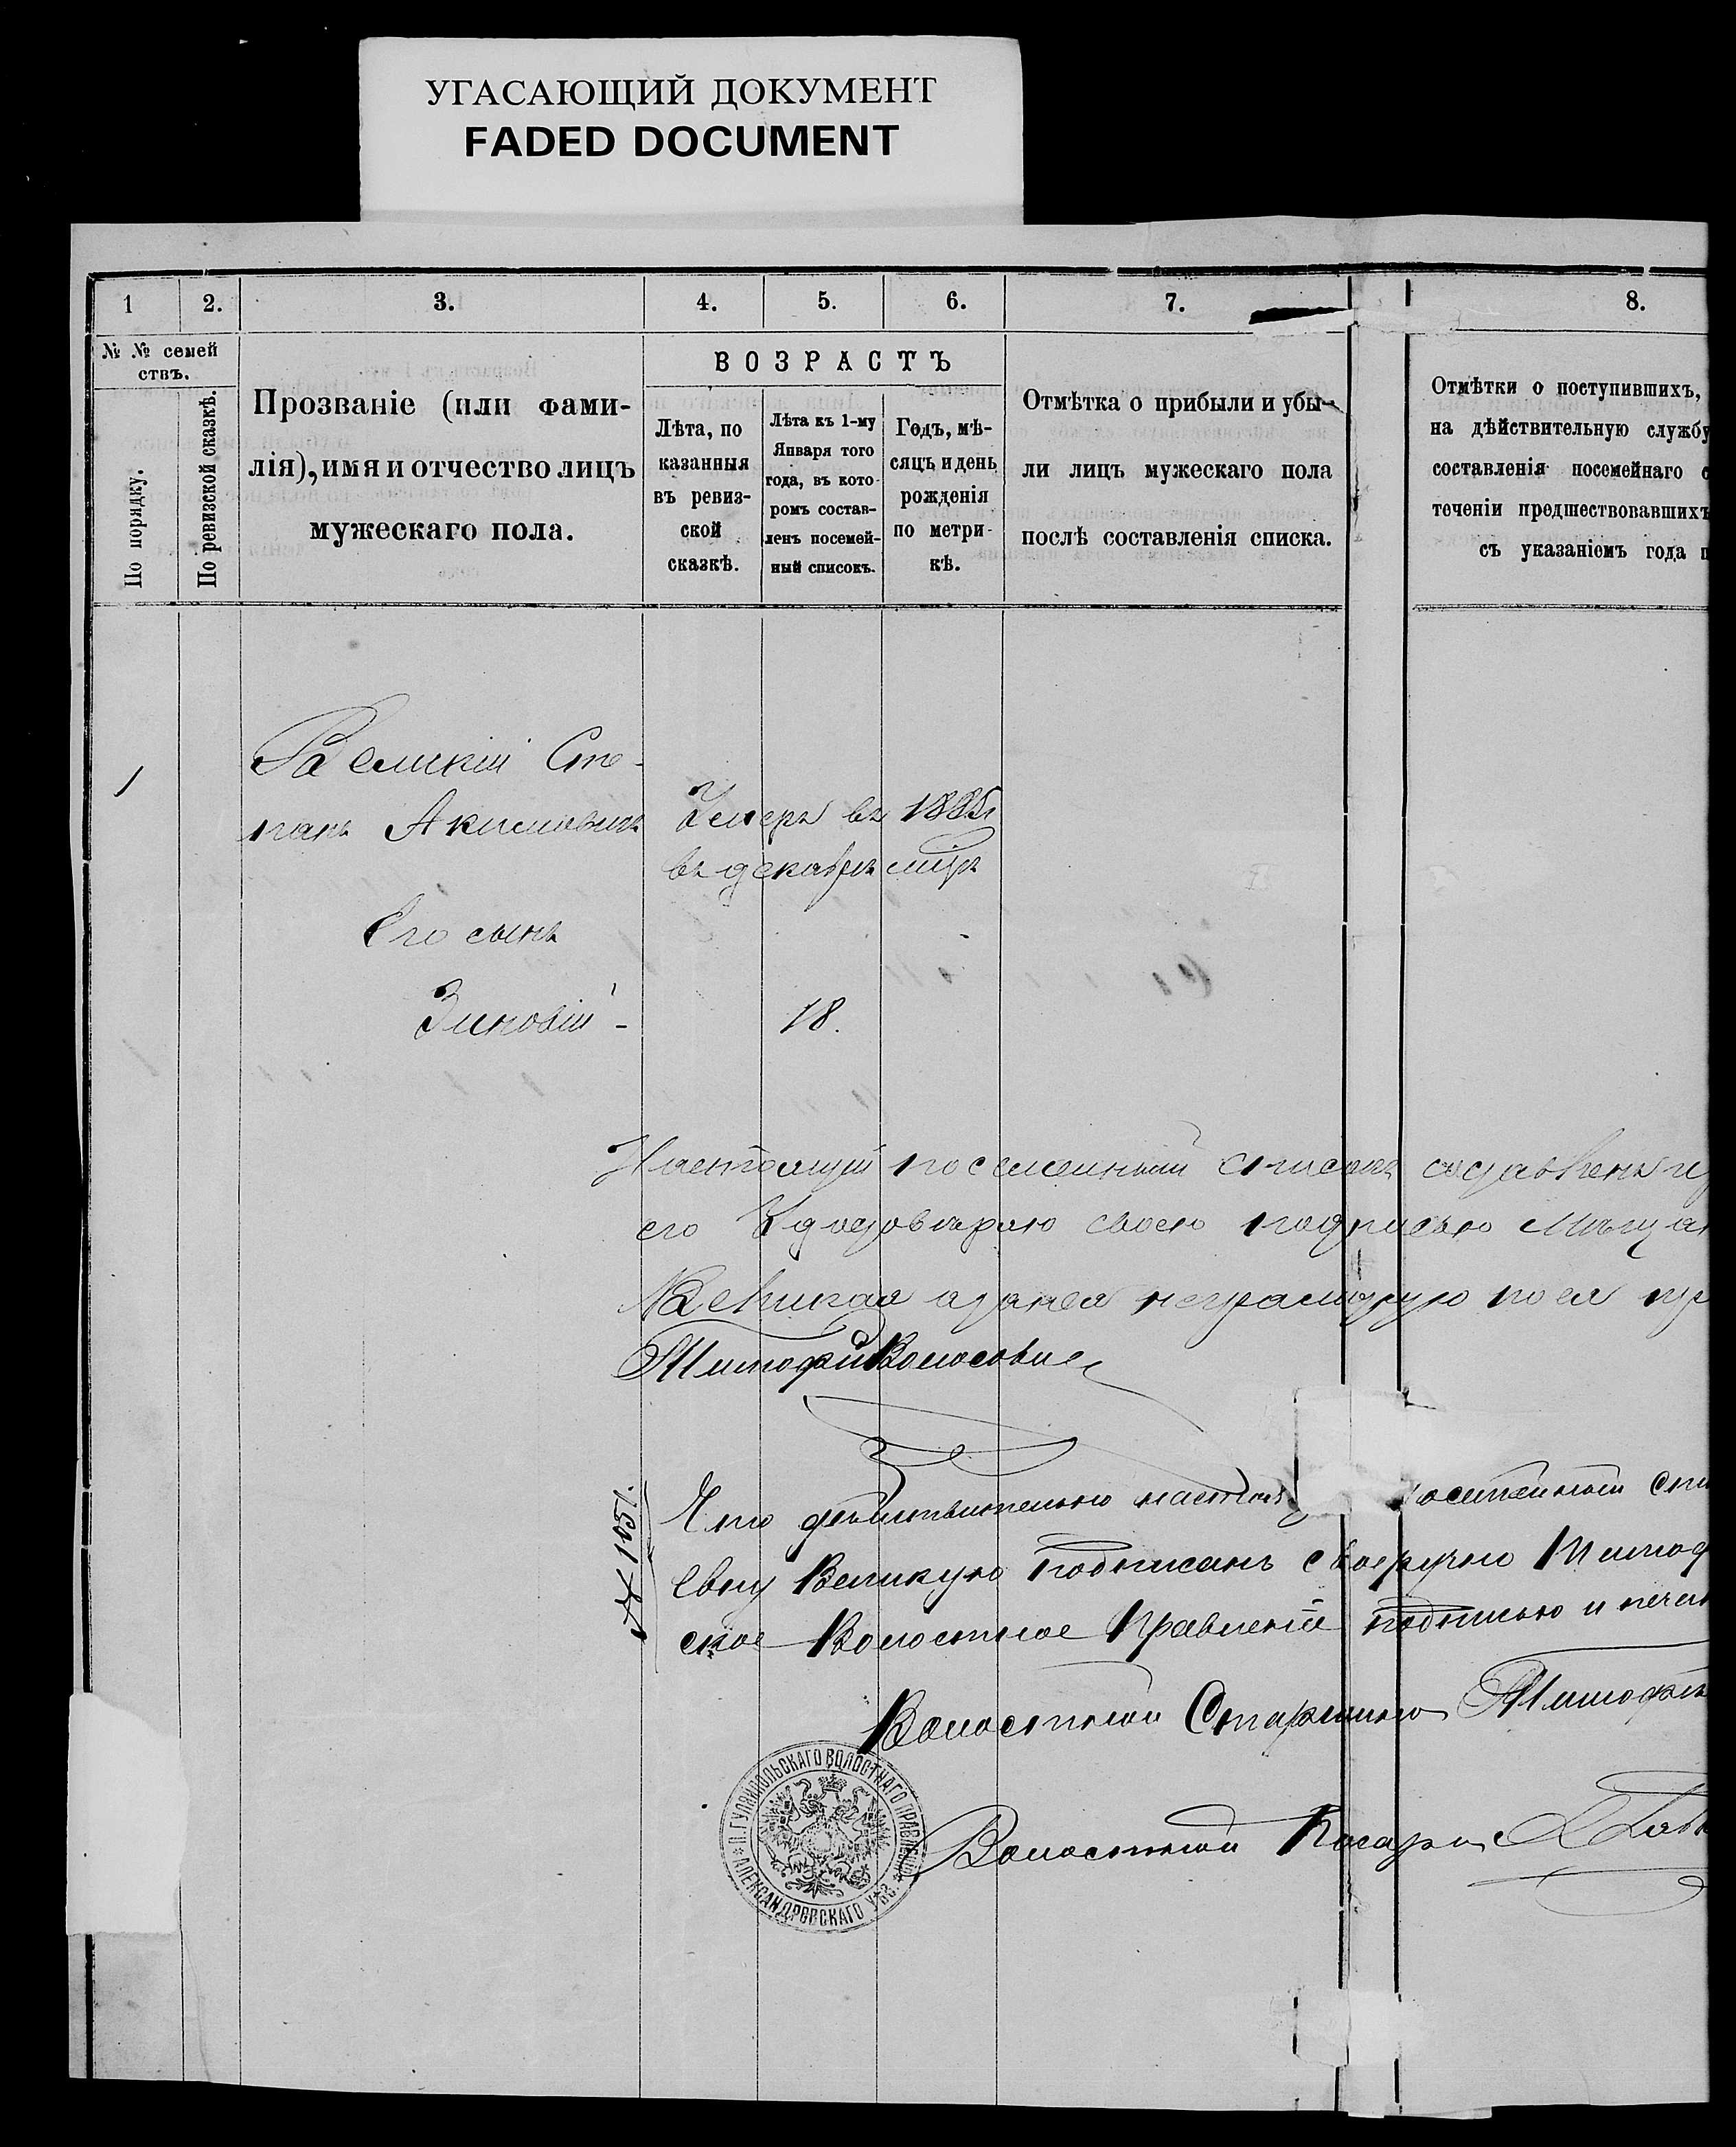 УГАСАЮЩИЙ ДОКУМЕНТ
FADED DOCUMENT
1
2.
3.
4.
5.
6.
7.
8.
№ № семей
ствъ.
По порядку.
По ревизской сказкѣ.
Прозваніе (или фами-
лія), имя и отчество лицъ
мужескаго пола.
ВОЗРАСТЪ
Лѣта, по
казанныя
въ ревиз-
ской
сказкѣ.
Лѣта къ 1-му
Января того
года, въ кото-
ромъ состав-
ленъ посемей-
ный списокъ.
Годъ, мѣ-
сяцъ и день
рожденія
по метри-
кѣ.
Отмѣтка о прибыли и убы-
ли лицъ мужескаго пола
послѣ составленія списка.
Отмѣтки о поступившихъ,
на дѣйствительную службу
составленія посемейнаго с
теченіи предшествовавшихъ
съ указаніемъ года п
1
Великій Сте-
панъ Акимовичъ
Умеръ въ 1885
въ декабрѣ мцѣ
Его сынъ
Зиновій -
18.
Настоящій посемейный списокъ составленъ
его удостовѣряю своею подписью Мѣщан
Великая а за нея неграмотную по ея пр
Тимофій Волосович
№ 1051.
Что действительно настоящ посемейный спи
евну Великую подписанъ своеручно Тимоф
ское Волостное Правленіе подписью и печат
Волостной Старшина Тимофѣ
Волостной Писарь
П. ГУЛЯЙПОЛЬСКАГО ВОЛОСТНАГО ПРАВЛЕНІЯ
АЛЕКСАНДРОВСКАГО УѢЗ.